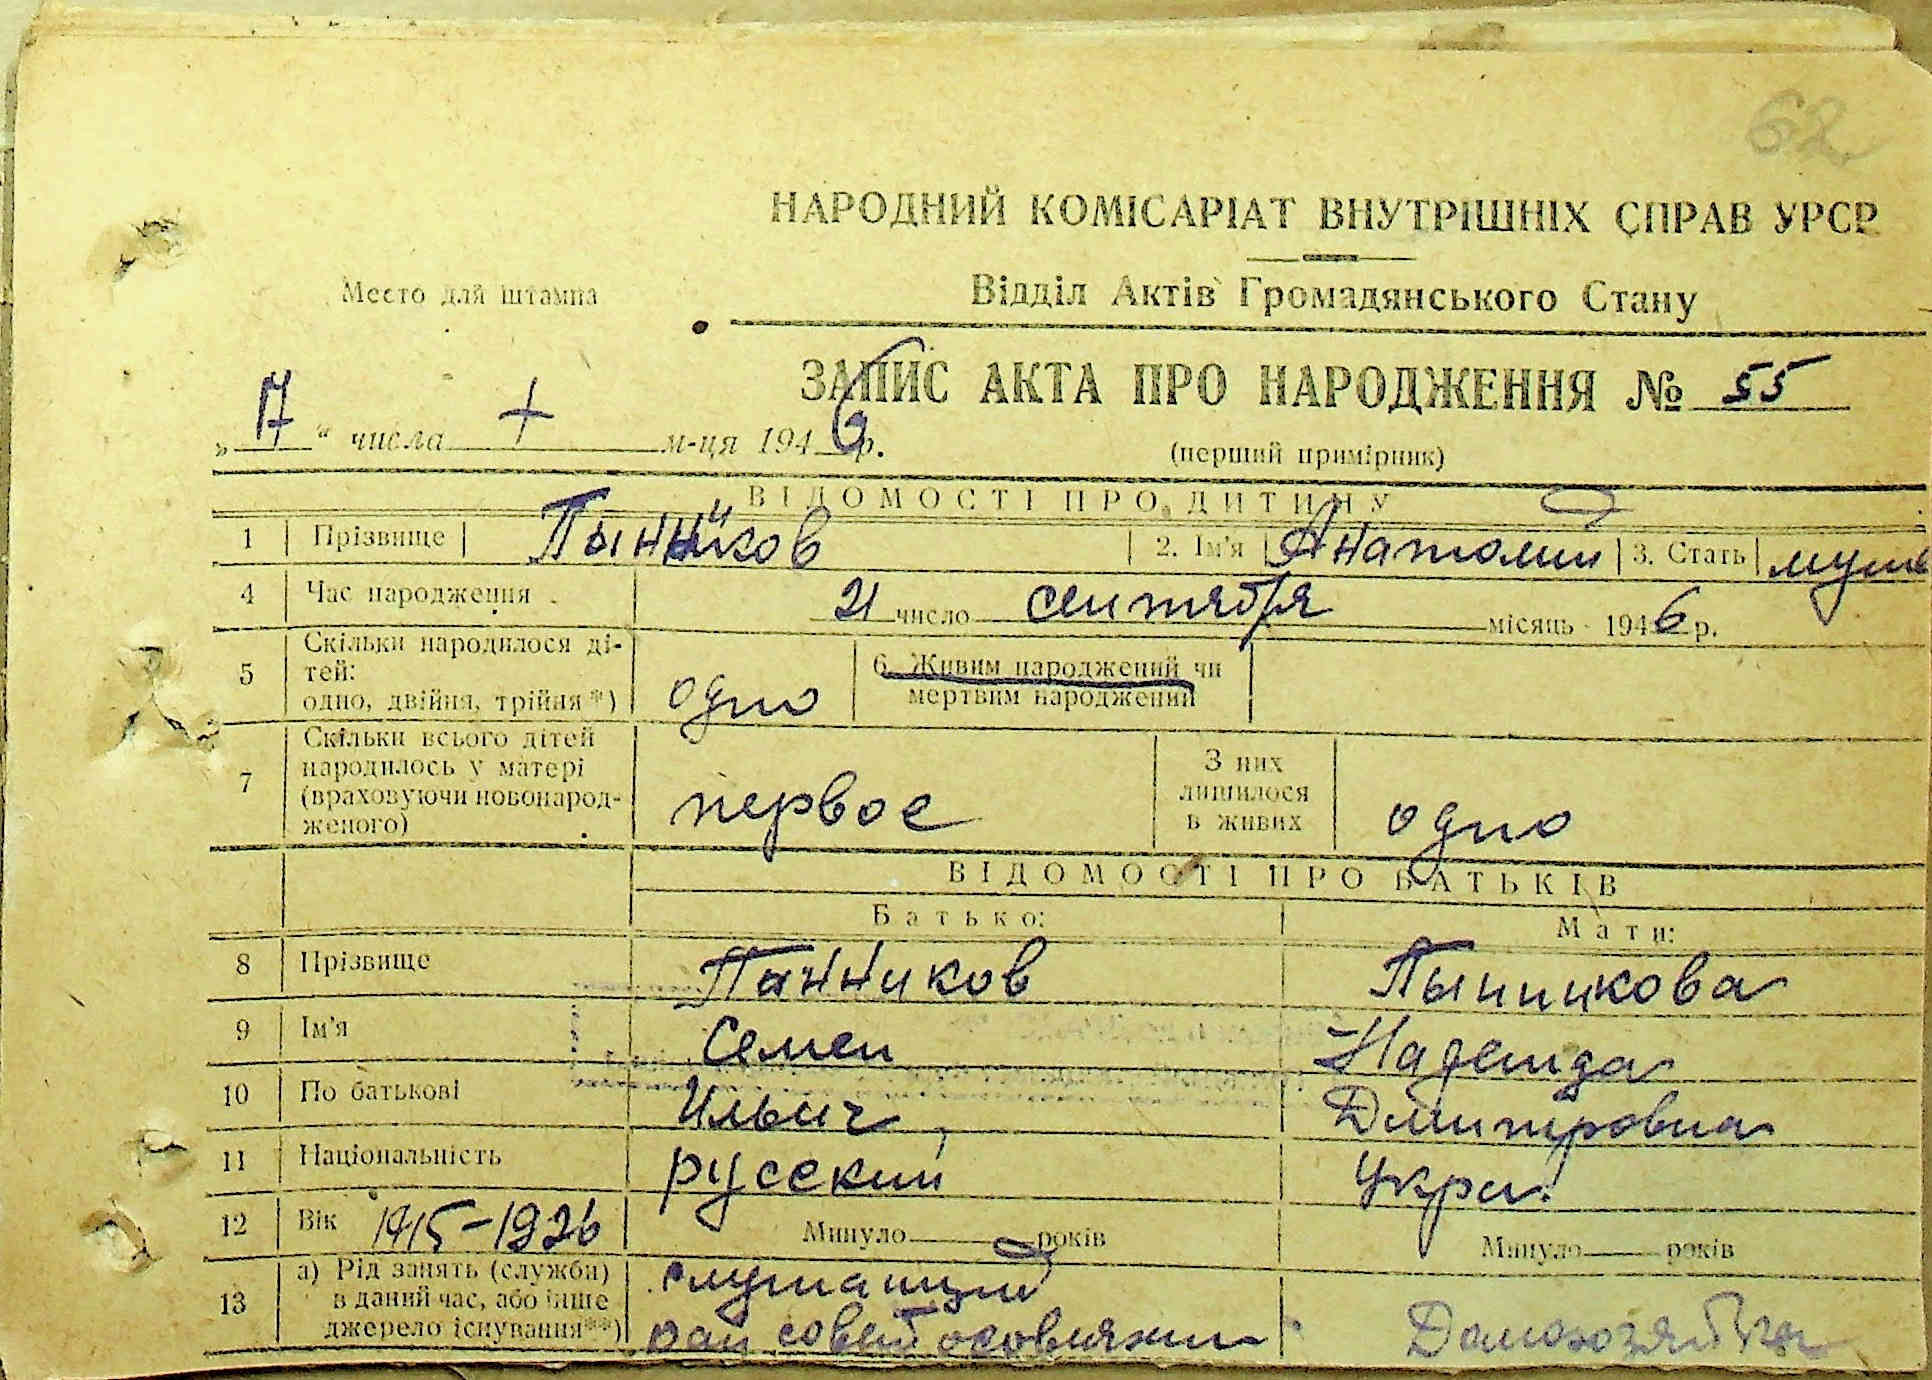 62
НАРОДНИЙ КОМІСАРІАТ ВНУТРІШНІХ СПРАВ УРСР
Место для штампа
Відділ Актів Громадянського Стану
ЗАПИС АКТА ПРО НАРОДЖЕННЯ № 55
„ 17 “ числа X м-ця 1946 р.
(перший примірник)
ВІДОМОСТІ ПРО ДИТИНУ
1 Прізвище Пынников 2. Ім'я Анатолий 3. Стать муж
4 Час народження 21 число сентября місяць 1946 р.
5 Скільки народилося ді-
тей:
одно, двійня, трійня *) одно
6. Живим народжений чи
мертвим народжений
7 Скільки всього дітей
народилось у матері
(враховуючи новонарод-
женого) первое
З них
лишилося
в живих одно
ВІДОМОСТІ ПРО БАТЬКІВ
Батько: Мати:
8 Прізвище Пынников Пынникова
9 Ім'я Семен Надежда
10 По батькові Ильич Дмитровна
11 Національність русский Укра.
12 Вік 1915-1926 Минуло років Минуло років
13 а) Рід занять (служби)
в даний час, або інше
джерело існування**)
служащий
рай совет Домохозяйка